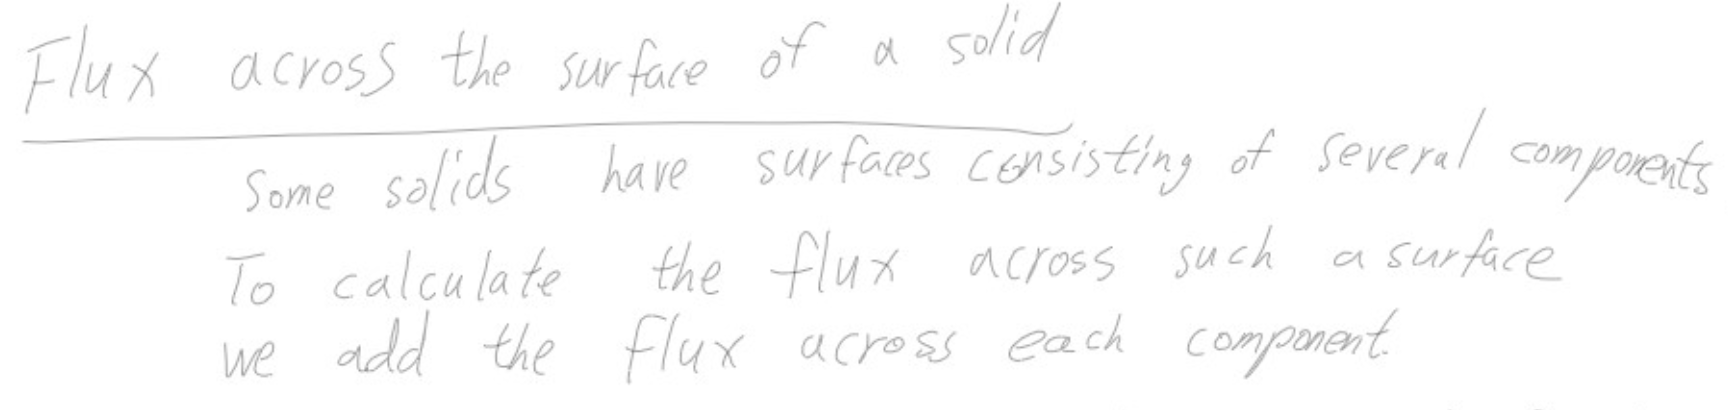 Flux across the surface of a solid
Some solids have surfaces consisting of several components
To calculate the flux across such a surface
we add the flux across each component.